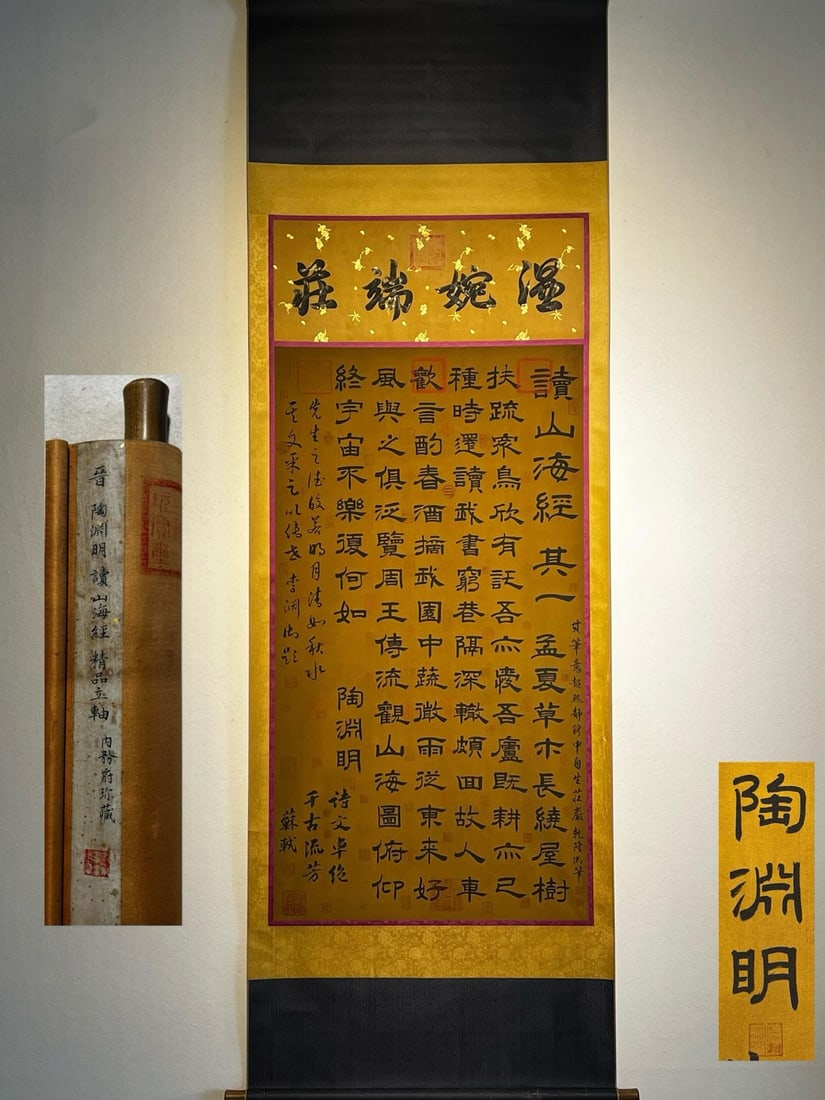 溫婉端莊
讀山海經 其一 孟夏草木長繞屋樹
扶疏衆鳥欣有託吾亦愛吾廬既耕亦已
種時還讀我書窮巷隔深轍頗回故人車
歡言酌春酒摘我園中蔬微雨從東來好
風與之俱泛覽周王傳流觀山海圖俯仰
終宇宙不樂復何如
陶淵明
筆意超然靜穆中自生莊嚴乾隆御筆
先生之德皎若明月清如秋水
其文采之以傳世李淵御題
诗文卓绝
千古流芳
蘇軾
晉 陶淵明 讀山海經 精品立軸
内務府珍藏
陶淵明